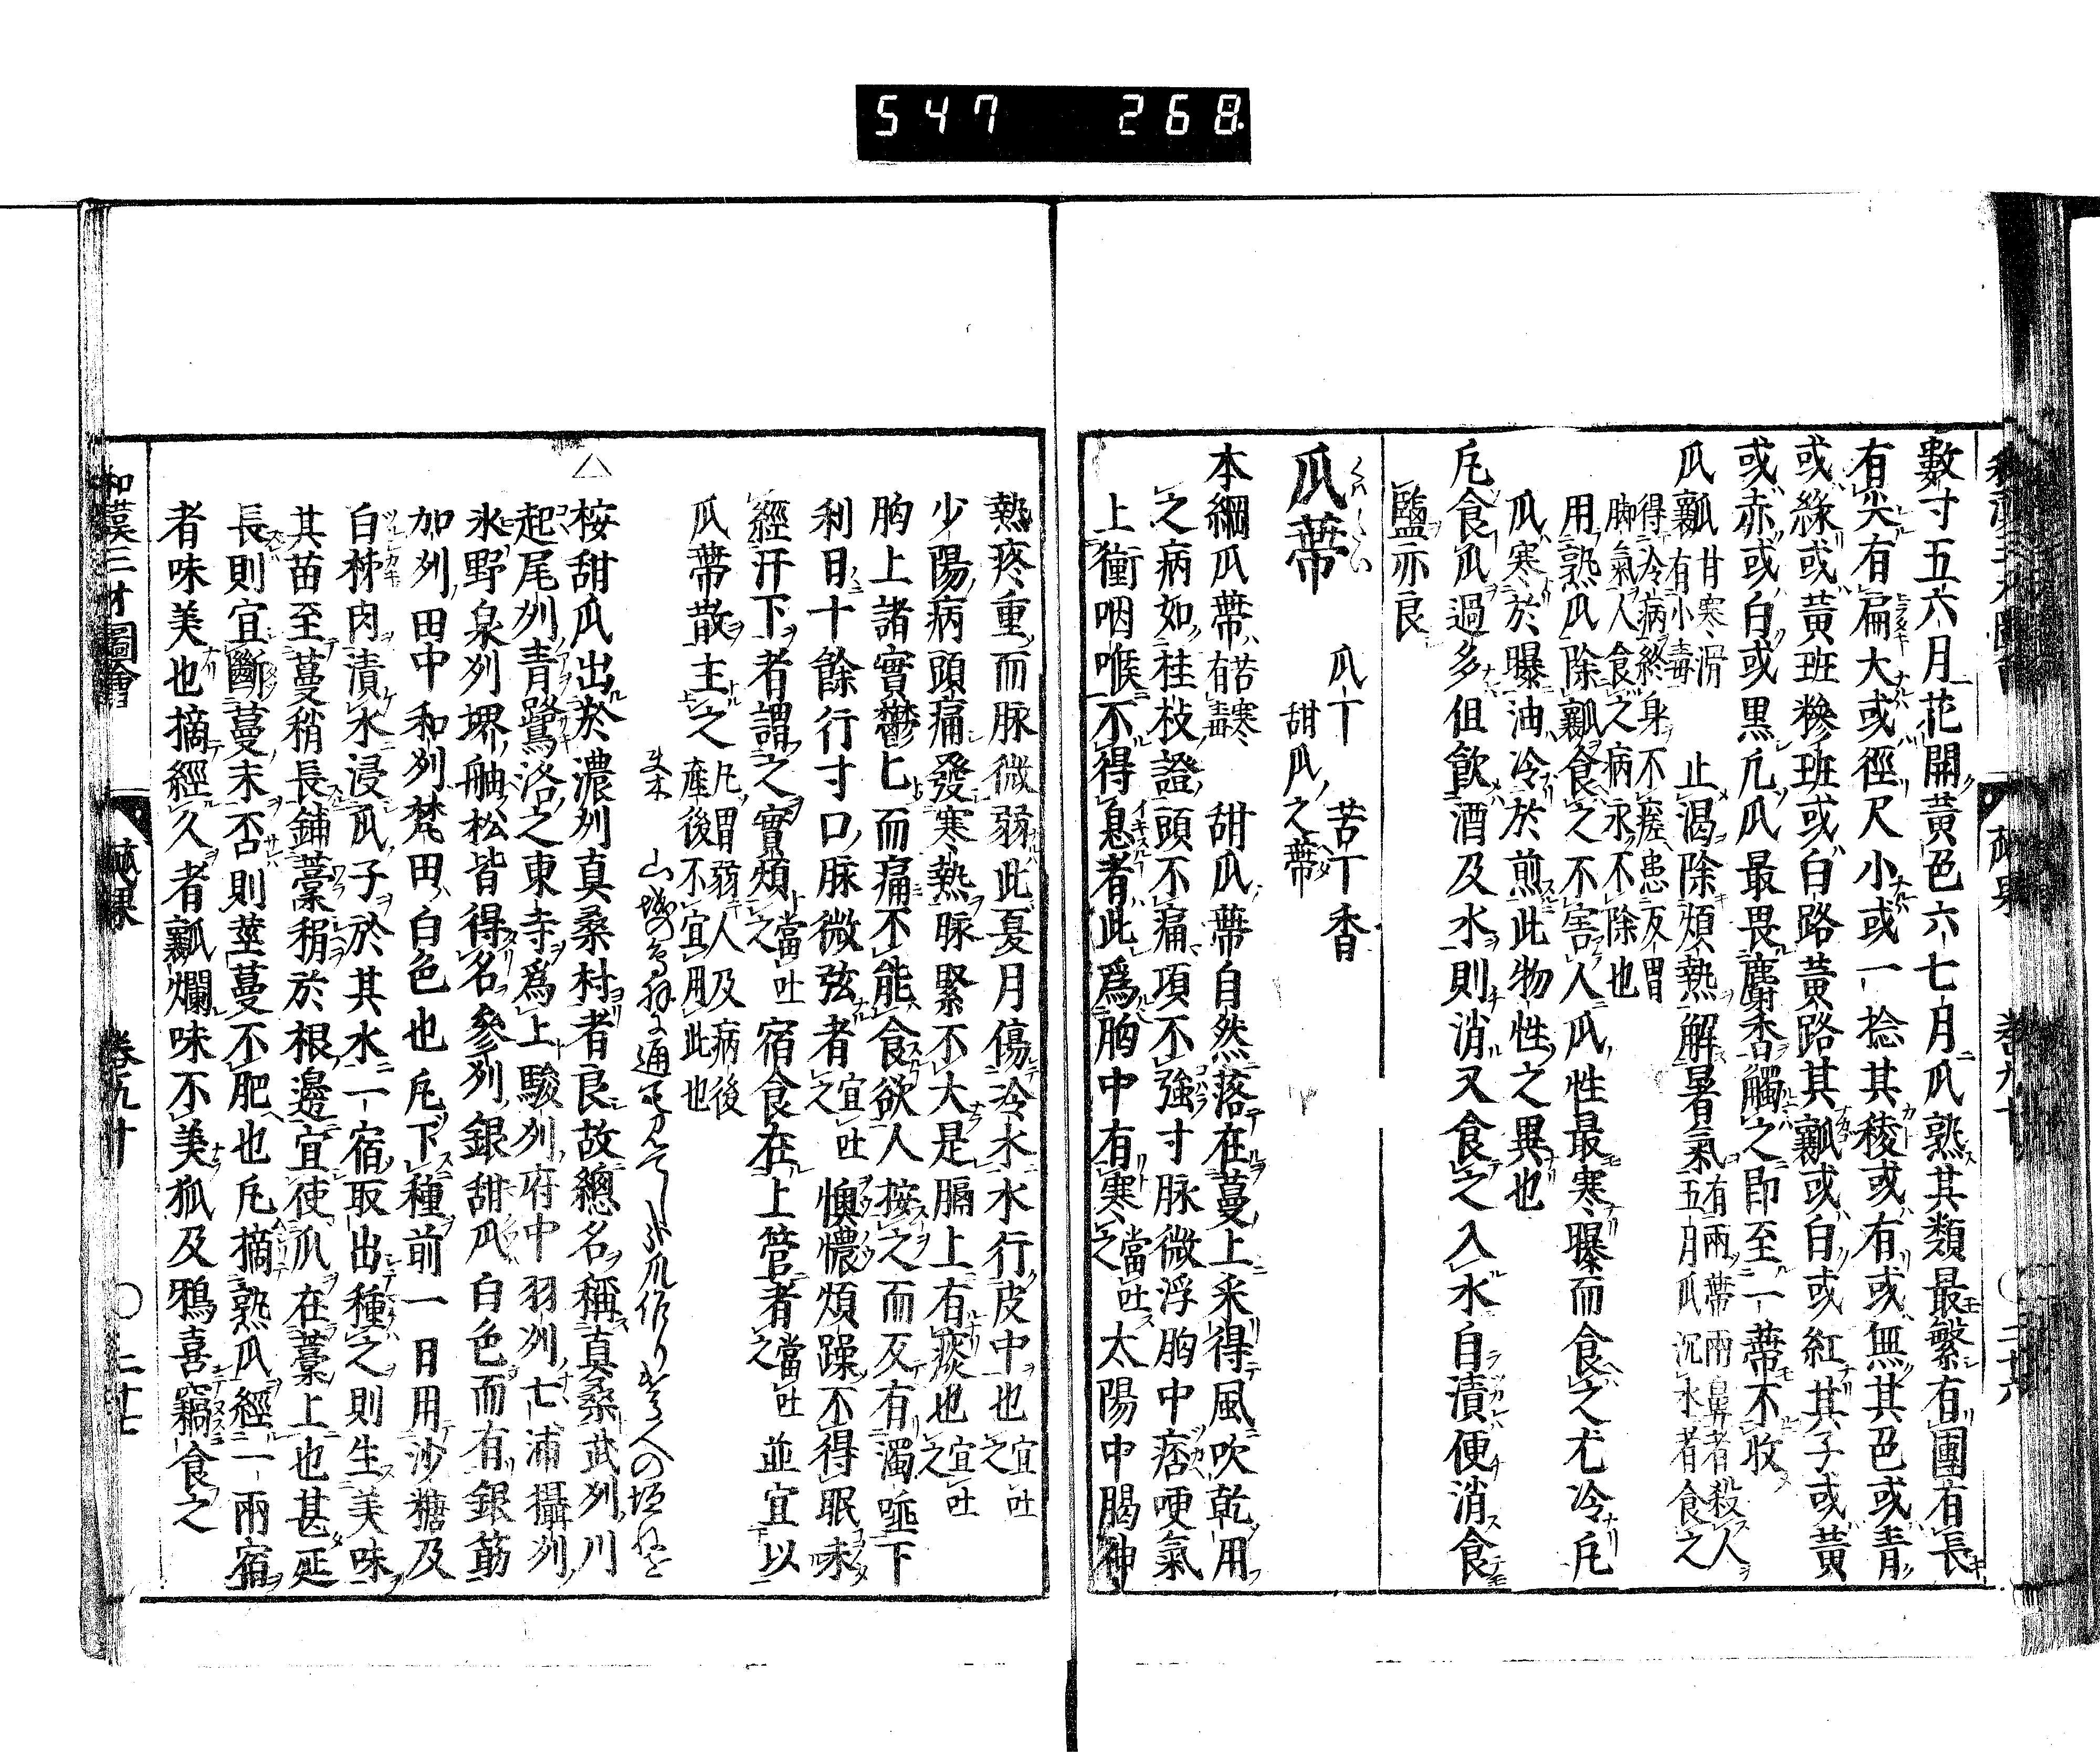 547 268
數寸五六月花開黃色六七月瓜熟其類最繁有團有長
有尖有扁大或徑尺小或一捻其稜或有或無其色或青
或綠或黃班糝班或白路黃路其瓤或白或紅其子或黃
或赤或白或黒凢瓜最畏麝香觸之即至一蒂不收
瓜瓤 甘寒滑有小毒 止渴除煩熱解暑氣 有兩蒂兩鼻者殺人五月瓜沉水者食之
得冷病終身不瘥患反胃脚氣人食之病永不除也
用熟瓜除瓤食之不害人瓜性最寒曝而食之尤冷凡
瓜寒於曝油冷於煎此物性之異也
凡食瓜過多但飲酒及水則消又食之入水自漬便消食
鹽亦良
瓜蒂 くはたい 瓜丁 苦丁香
甜瓜之蒂
本綱瓜蒂 苦寒有毒 甜瓜蒂自然落在蔓上采得風吹乾用
之病如桂枝證頭不痛項不強寸脉微浮胸中痞哽氣
上衝咽喉不得息者此爲胸中有寒 當吐之 太陽中暍伸
熱疼重而脉微弱此夏月傷冷水水行皮中也 宜吐之
少陽病頭痛發寒熱脉緊不大是膈上有痰也 宜吐之
胸上諸實鬱匕而痛不能食欲人按之而反有濁唾下
利日十餘行寸口脉微弦者 宜吐之 懊憹煩躁不得眠未
經汗下者謂之實煩 當吐之 宿食在上管者 當吐之 並宜以
瓜蒂散主之 凡胃弱人及病後產後不宜用此也
△
桉甜瓜出於濃刕真桑村者良故總名稱真桑武刕川
起尾刕青鷺洛之東寺爲上駿刕府中羽州七浦攝刕
氷野泉刕堺舳松皆得名參刕銀甜瓜白色而有銀筋
加刕田中和刕梵田白色也凡下種前一日用沙糖及
白柹肉漬水浸瓜子於其水一宿取出種之則生美味
其苗至蔓稍長鋪藁稍於根邊宜使瓜在藁上也甚延
長則宜斷蔓末否則莖蔓不肥也凡摘熟瓜經一兩宿
者味美也摘經久者瓤爛味不美狐及鴉喜竊食之
和漢三才圖會 蓏果 卷九十 〇 二十七